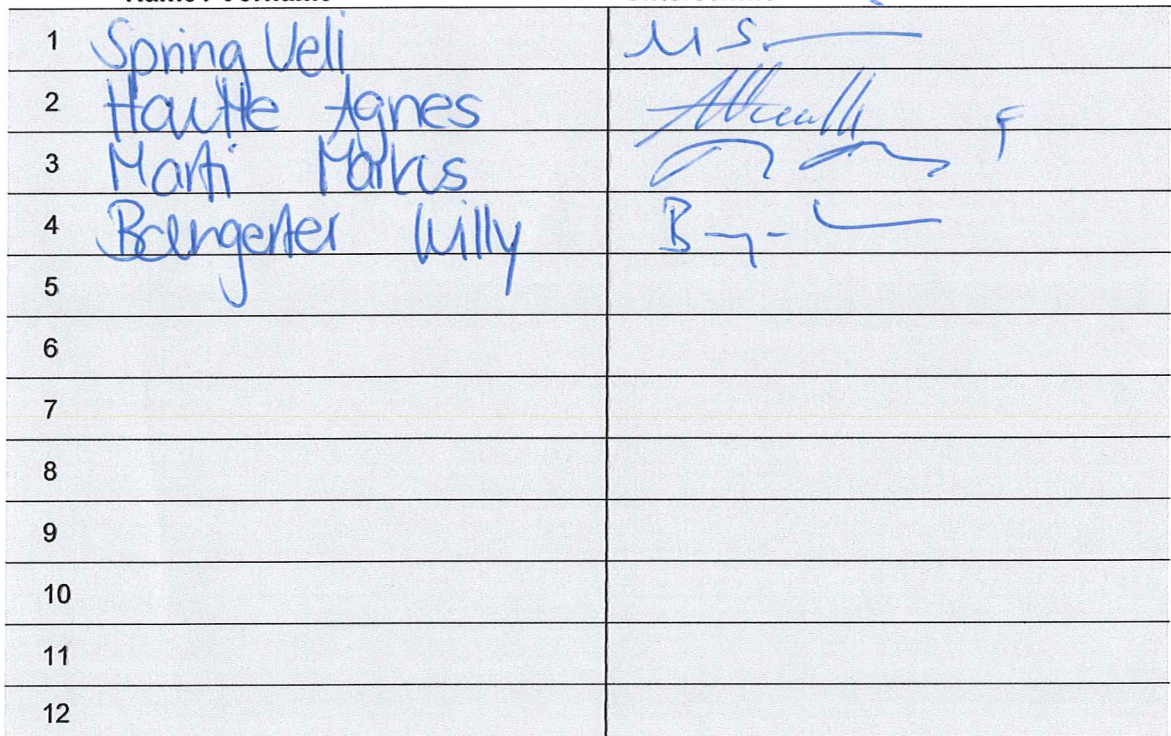 1 Spring Ueli M S.
2 Hautle Agnes
3 Marti Markus
4 Bangerter Willy B
5
6
7
8
9
10
11
12